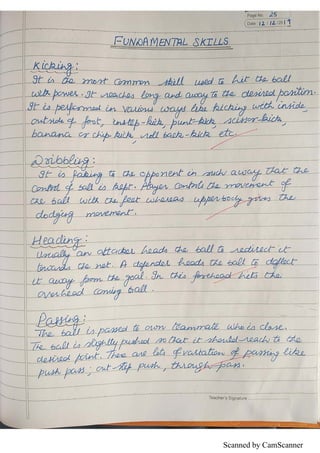 Page No. 25
Date 12.12.2019
FUNDAMENTAL SKILLS
Kicking:
It is the most common skill used to hit the ball
with power. It reaches long and away to the desired position.
It is performed in various ways like kicking with inside,
outside of foot, instep-kick, punt-kick, scissor-kick,
banana or chip kick, roll back-kick etc.
Dribbling:
It is faking to the opponent in such away that the
control of ball is kept. Player controls the movement of
the ball with the feet whereas upperbody gives the
dodging movement.
Heading:
Usually an attacker heads the ball to redirect it
towards the net. A defender heads the ball to deflect
it away from the goal. In this forehead hits the
overhead coming ball.
Passing:
The ball is passed to own teammate who is close.
The ball is slightly pushed so that it should reach to the
desired point. There are lots of variation of passing like
push pass; out step push, through pass.
Teacher's Signature
Scanned by CamScanner